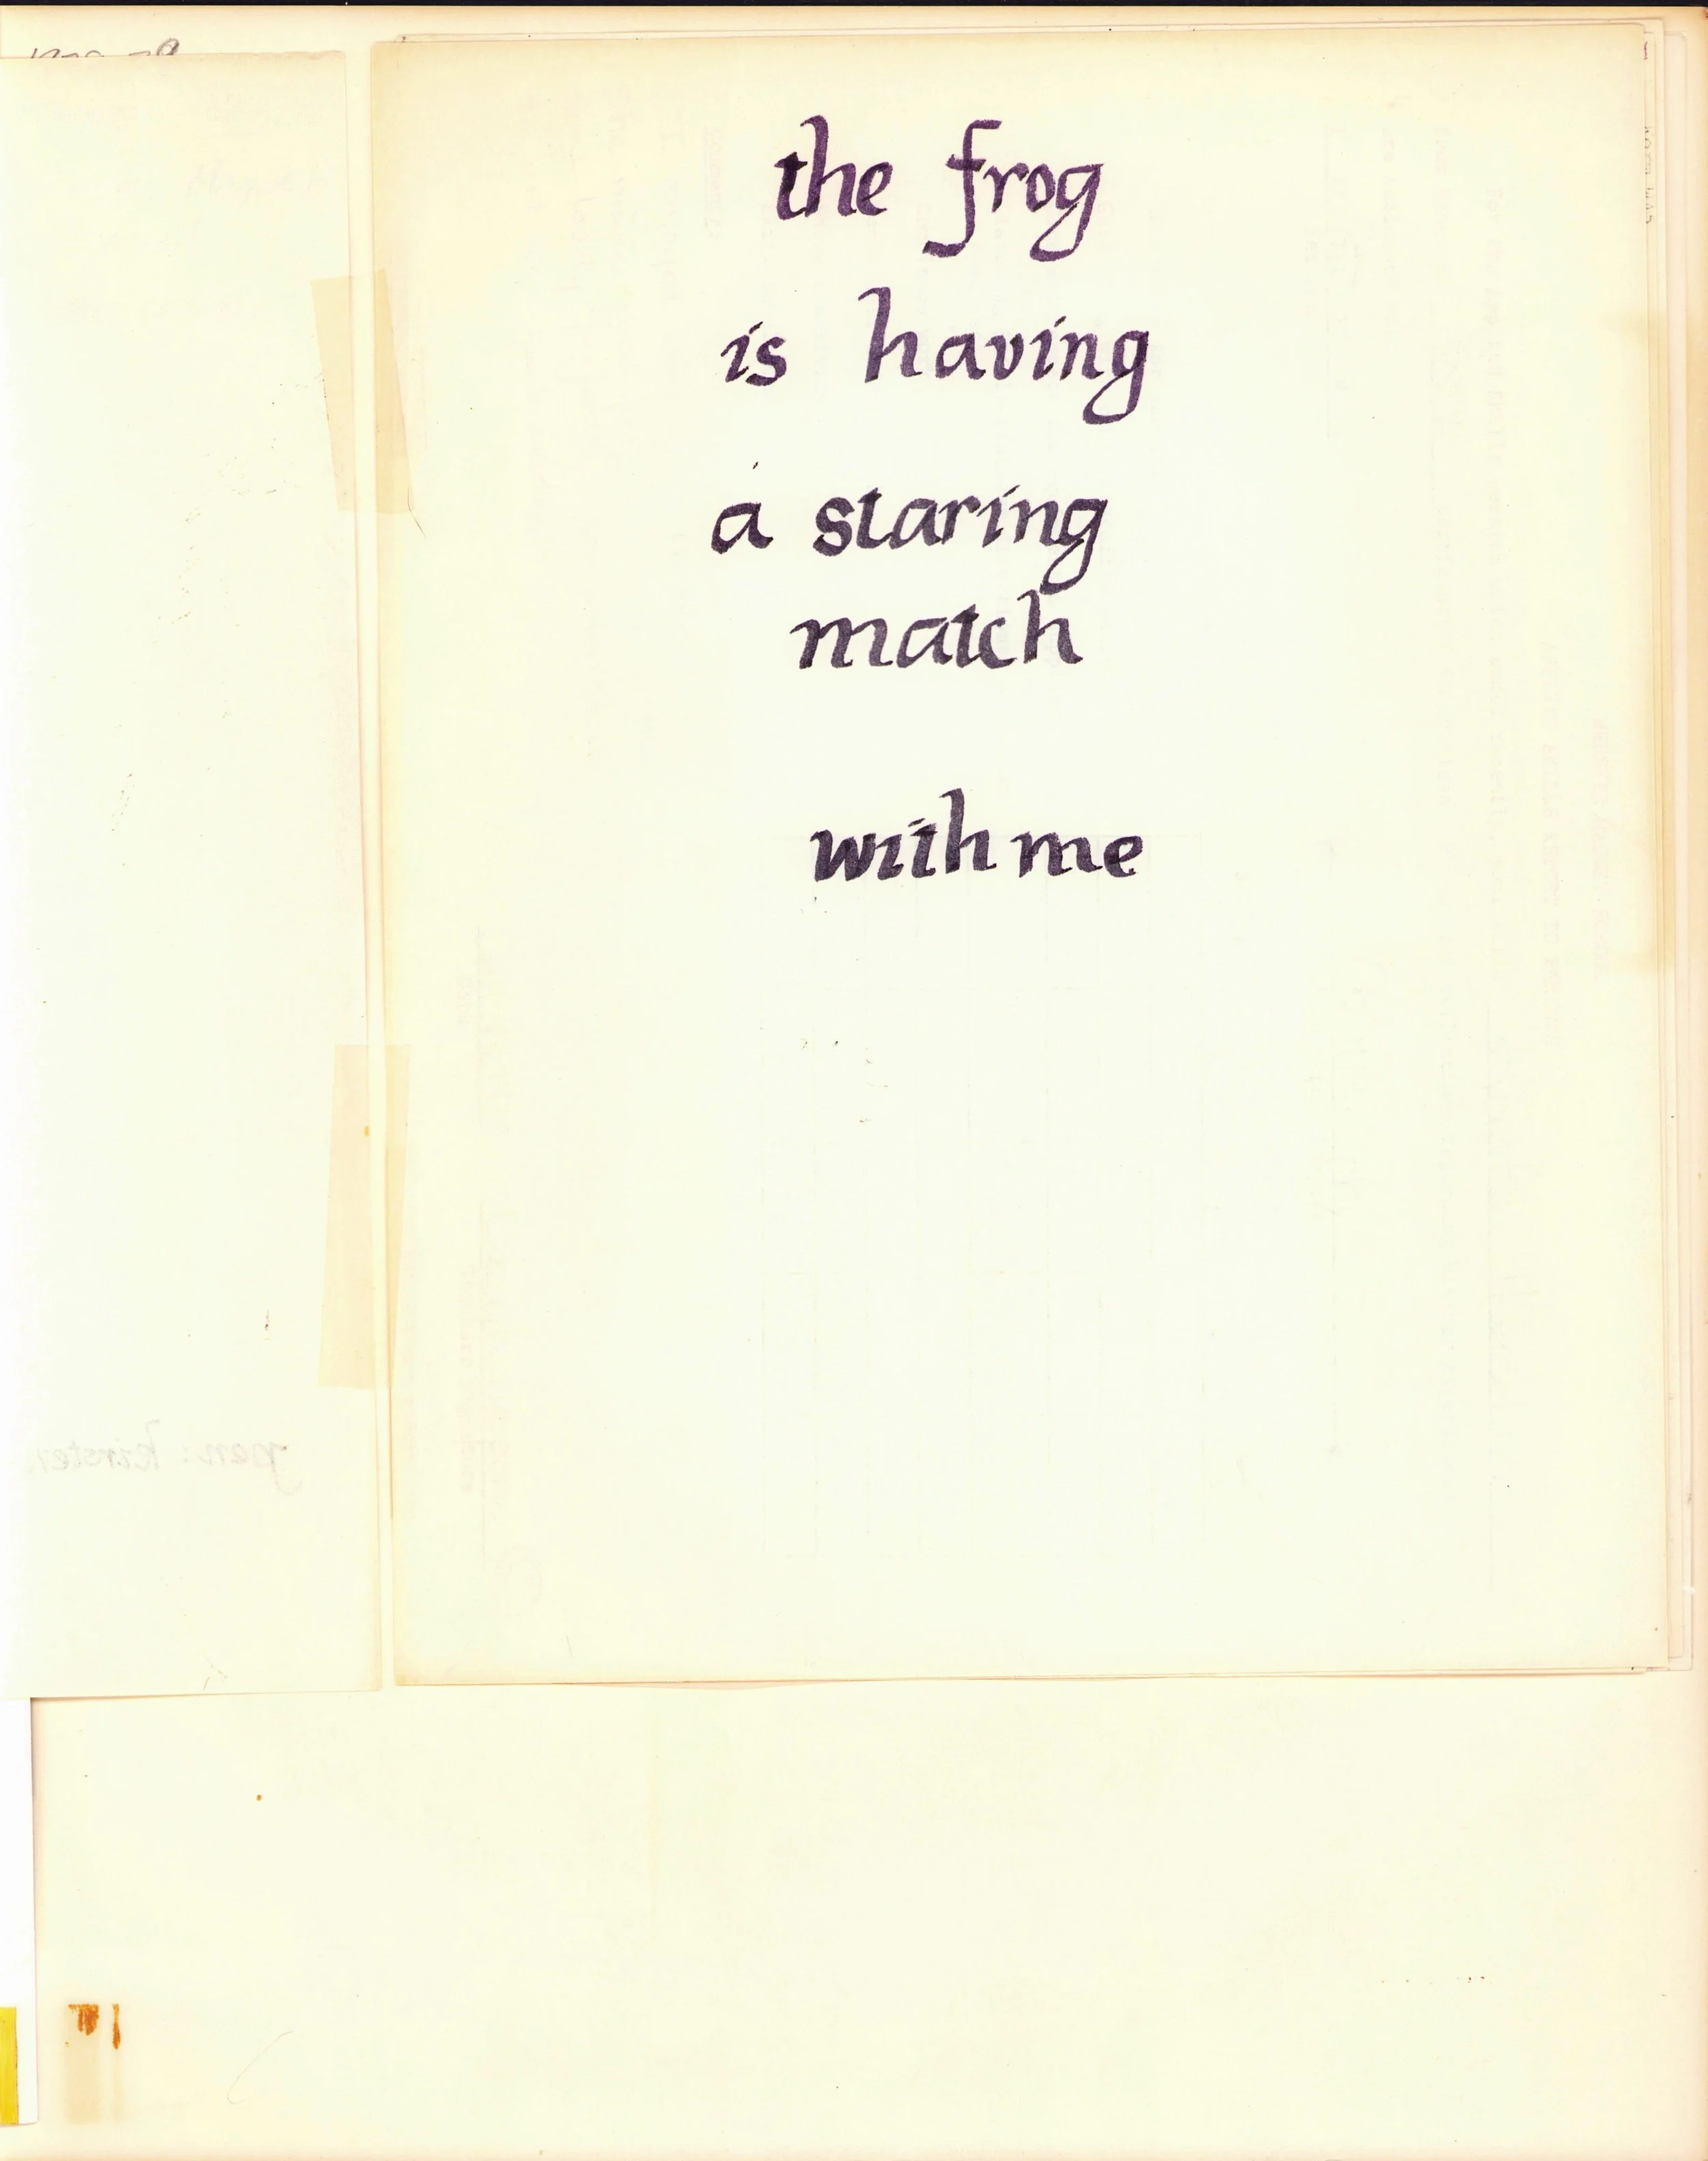 the frog
is having
a staring
match
with me
pen: kirsten